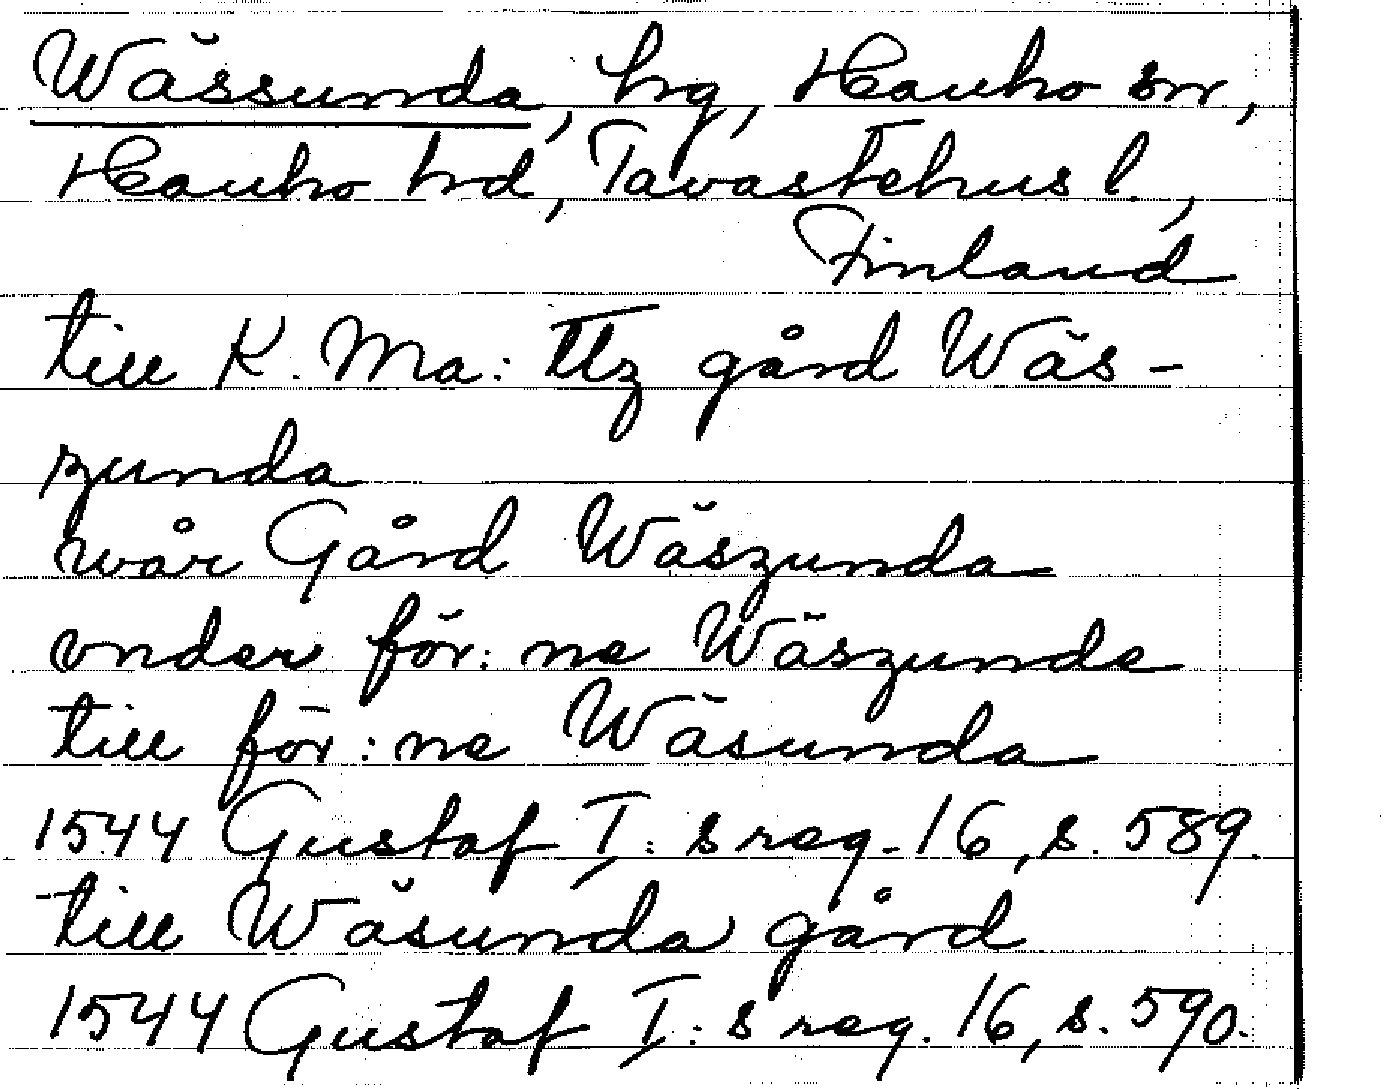 Wässunda, hg, Hauho sn,
Hauho hd, Tavastehus l.,
Finland
till K. Ma: ttz gård Wäs-
zunda
wår Gård Wäszunda
vnder för: ne Wäszunde
till för: ne Wäsunda
1544 Gustaf I: s reg. 16, s. 589.
till Wäsunda gård
1544 Gustaf I: s reg. 16, s. 590.